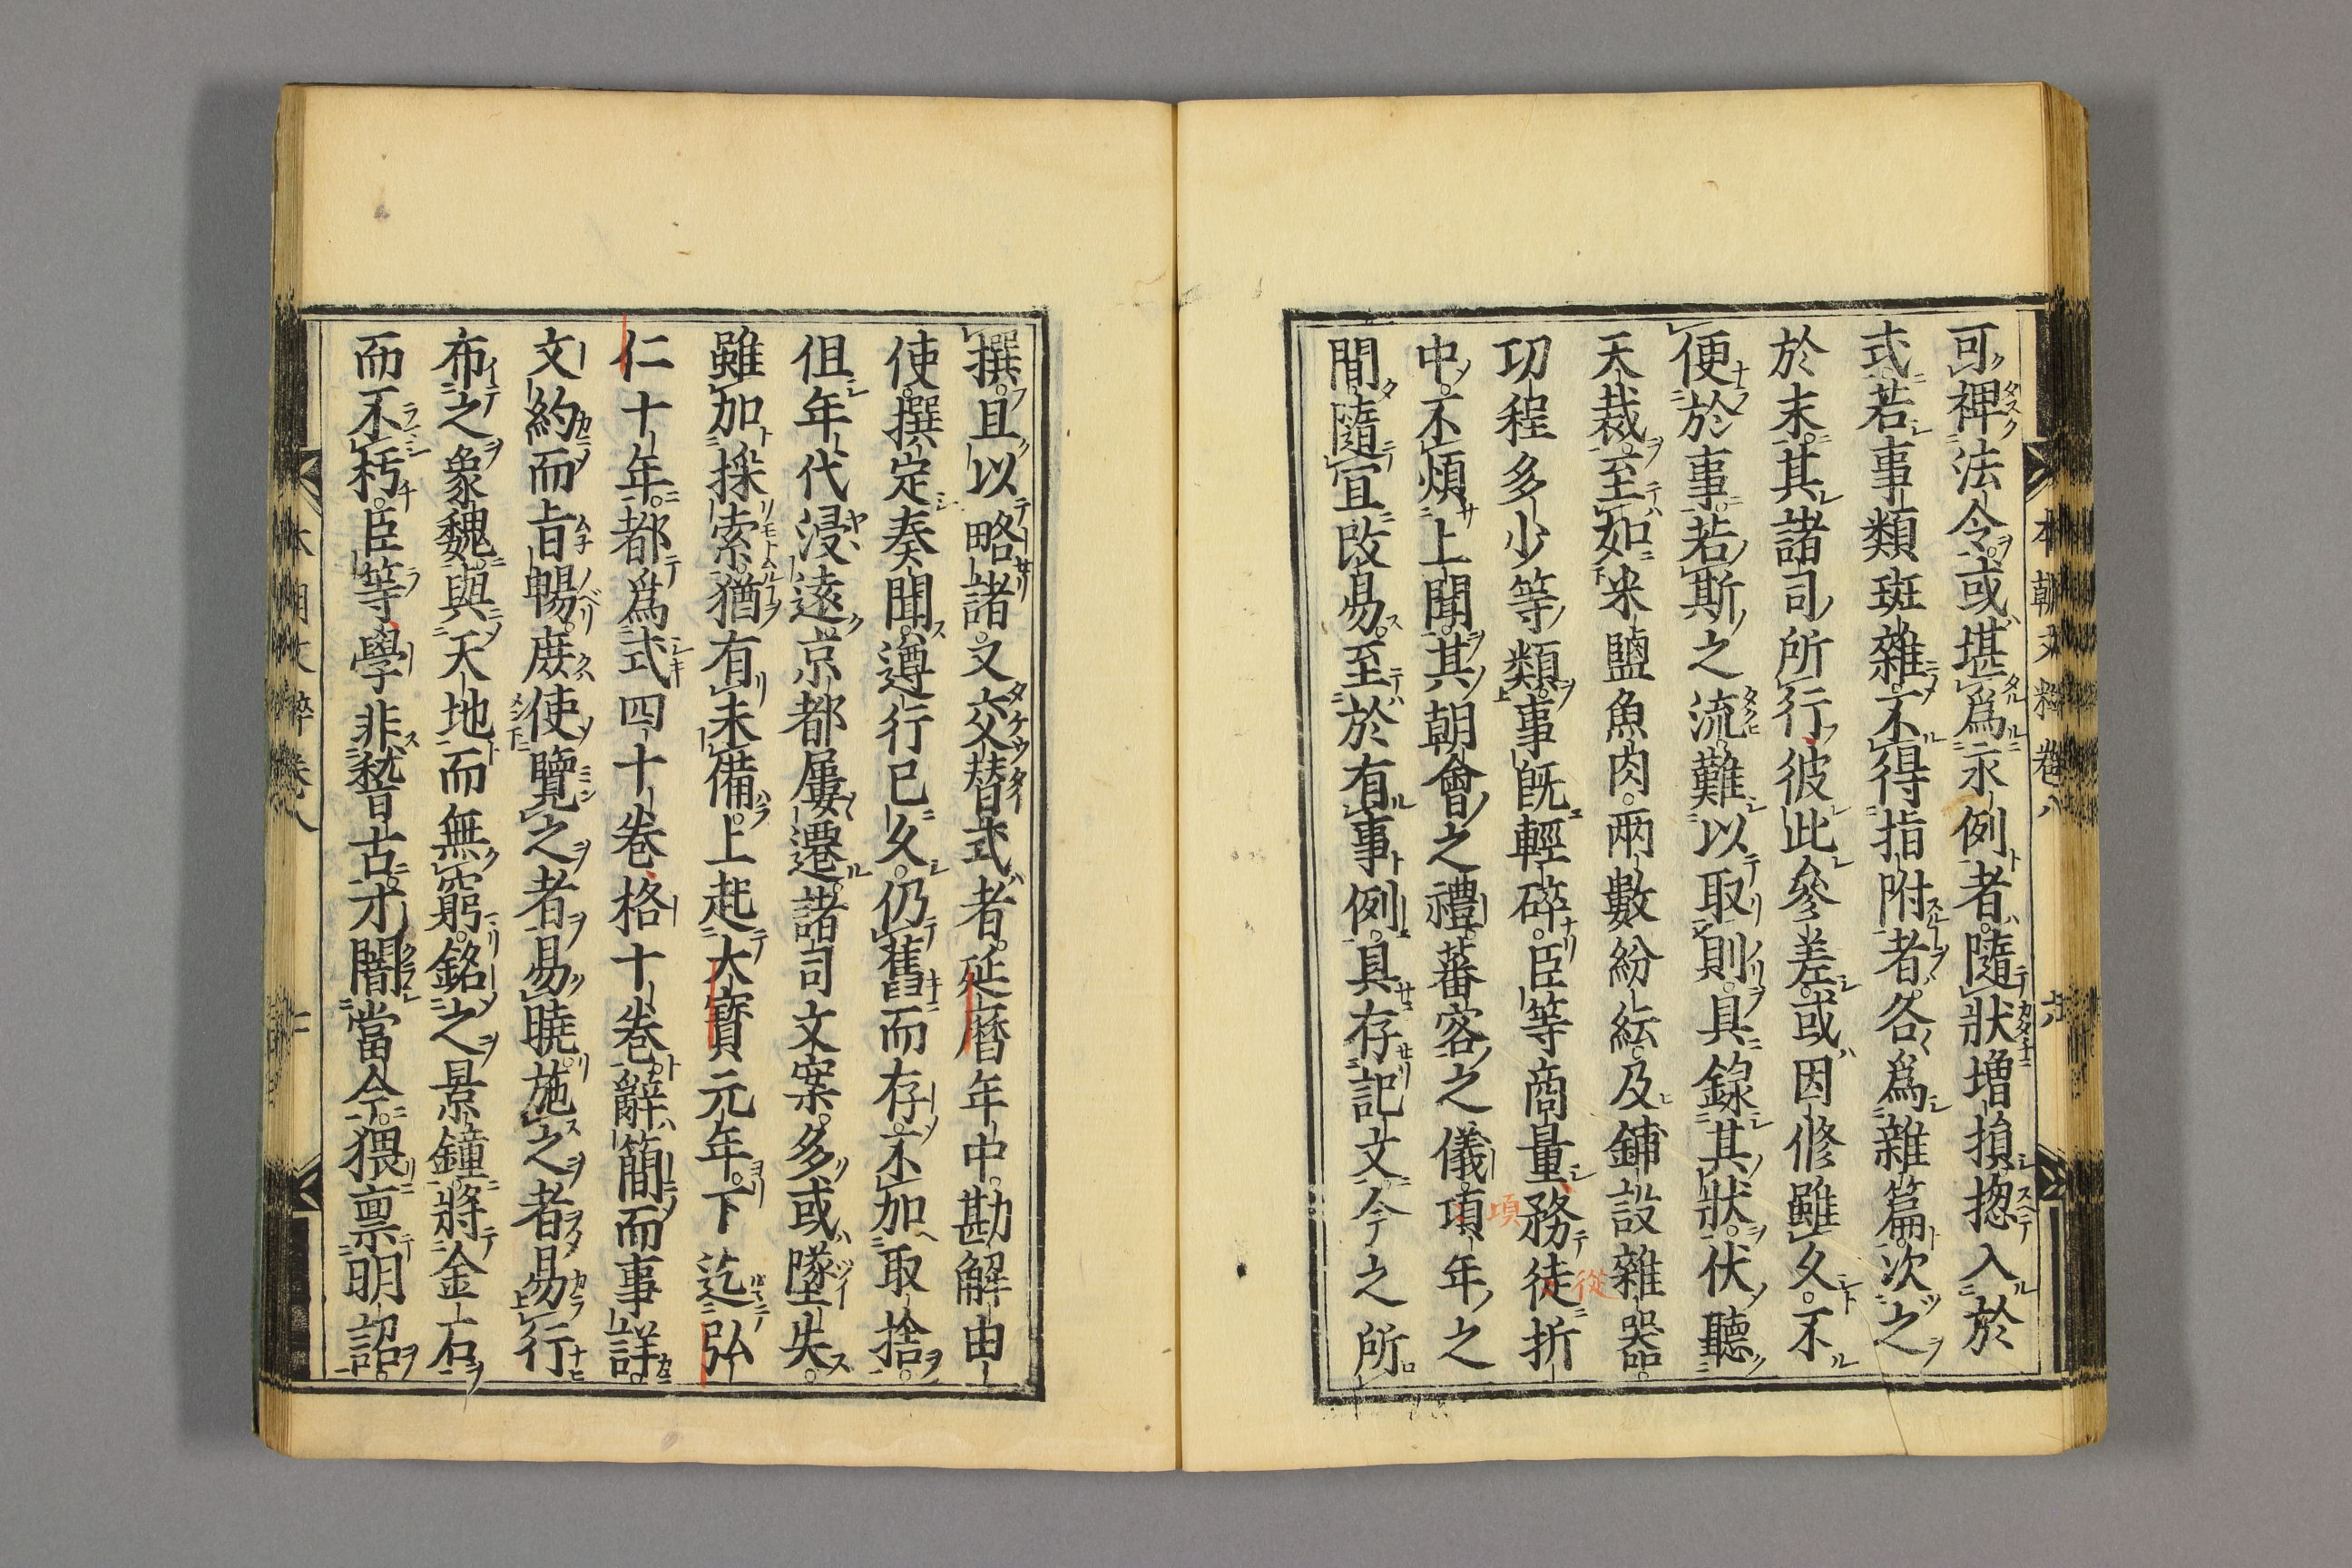 可裨法令或堪爲永例者隨狀増損揔入於
式若事類斑雜不得指附者各爲雜篇次之
於末其諸司所行彼此參差或因修雖久不
便於事若斯之流難以取則具録其狀伏聽
天裁至如米鹽魚肉兩數紛紜及鋪設雜器
功程多少等類事既輕碎臣等商量務徒折
從
中不煩上聞其朝會之禮蕃客之儀項年之
項
間隨宜改易至於有事例具存記文今之所
本朝文粹卷八
六
撰且以略諸又交替式者延暦年中勘解由
使撰定奏聞遵行已久仍舊而存不加取捨
但年代浸遠京都屢遷諸司文案多或墜失
雖加採索猶有未備上起大寶元年下迄弘
仁十年都爲式四十卷格十卷辭簡而事詳
文約而旨暢庶使覽之者易曉施之者易行
布之象魏與天地而無窮銘之景鐘將金石
而不朽臣等學非稽古才闇當今猥禀明詔
本朝文粹卷八